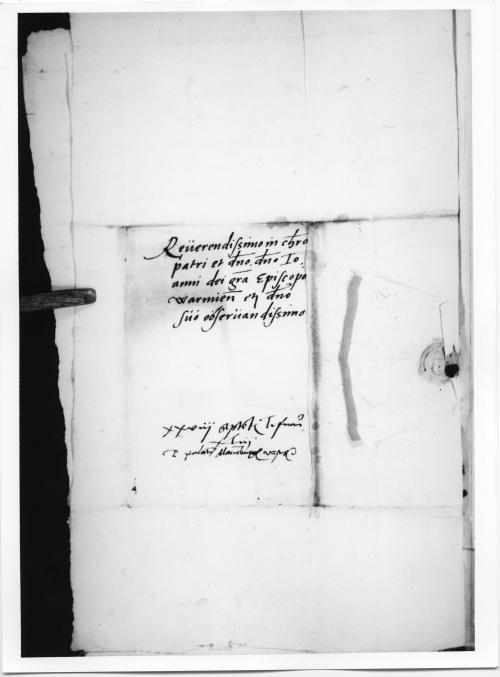 Reüerendissimo in chro
patri et dno dno Io.
anni dei gra Episcopo
warmien etc dno
süo obserüandissimo
xxviij
xliij